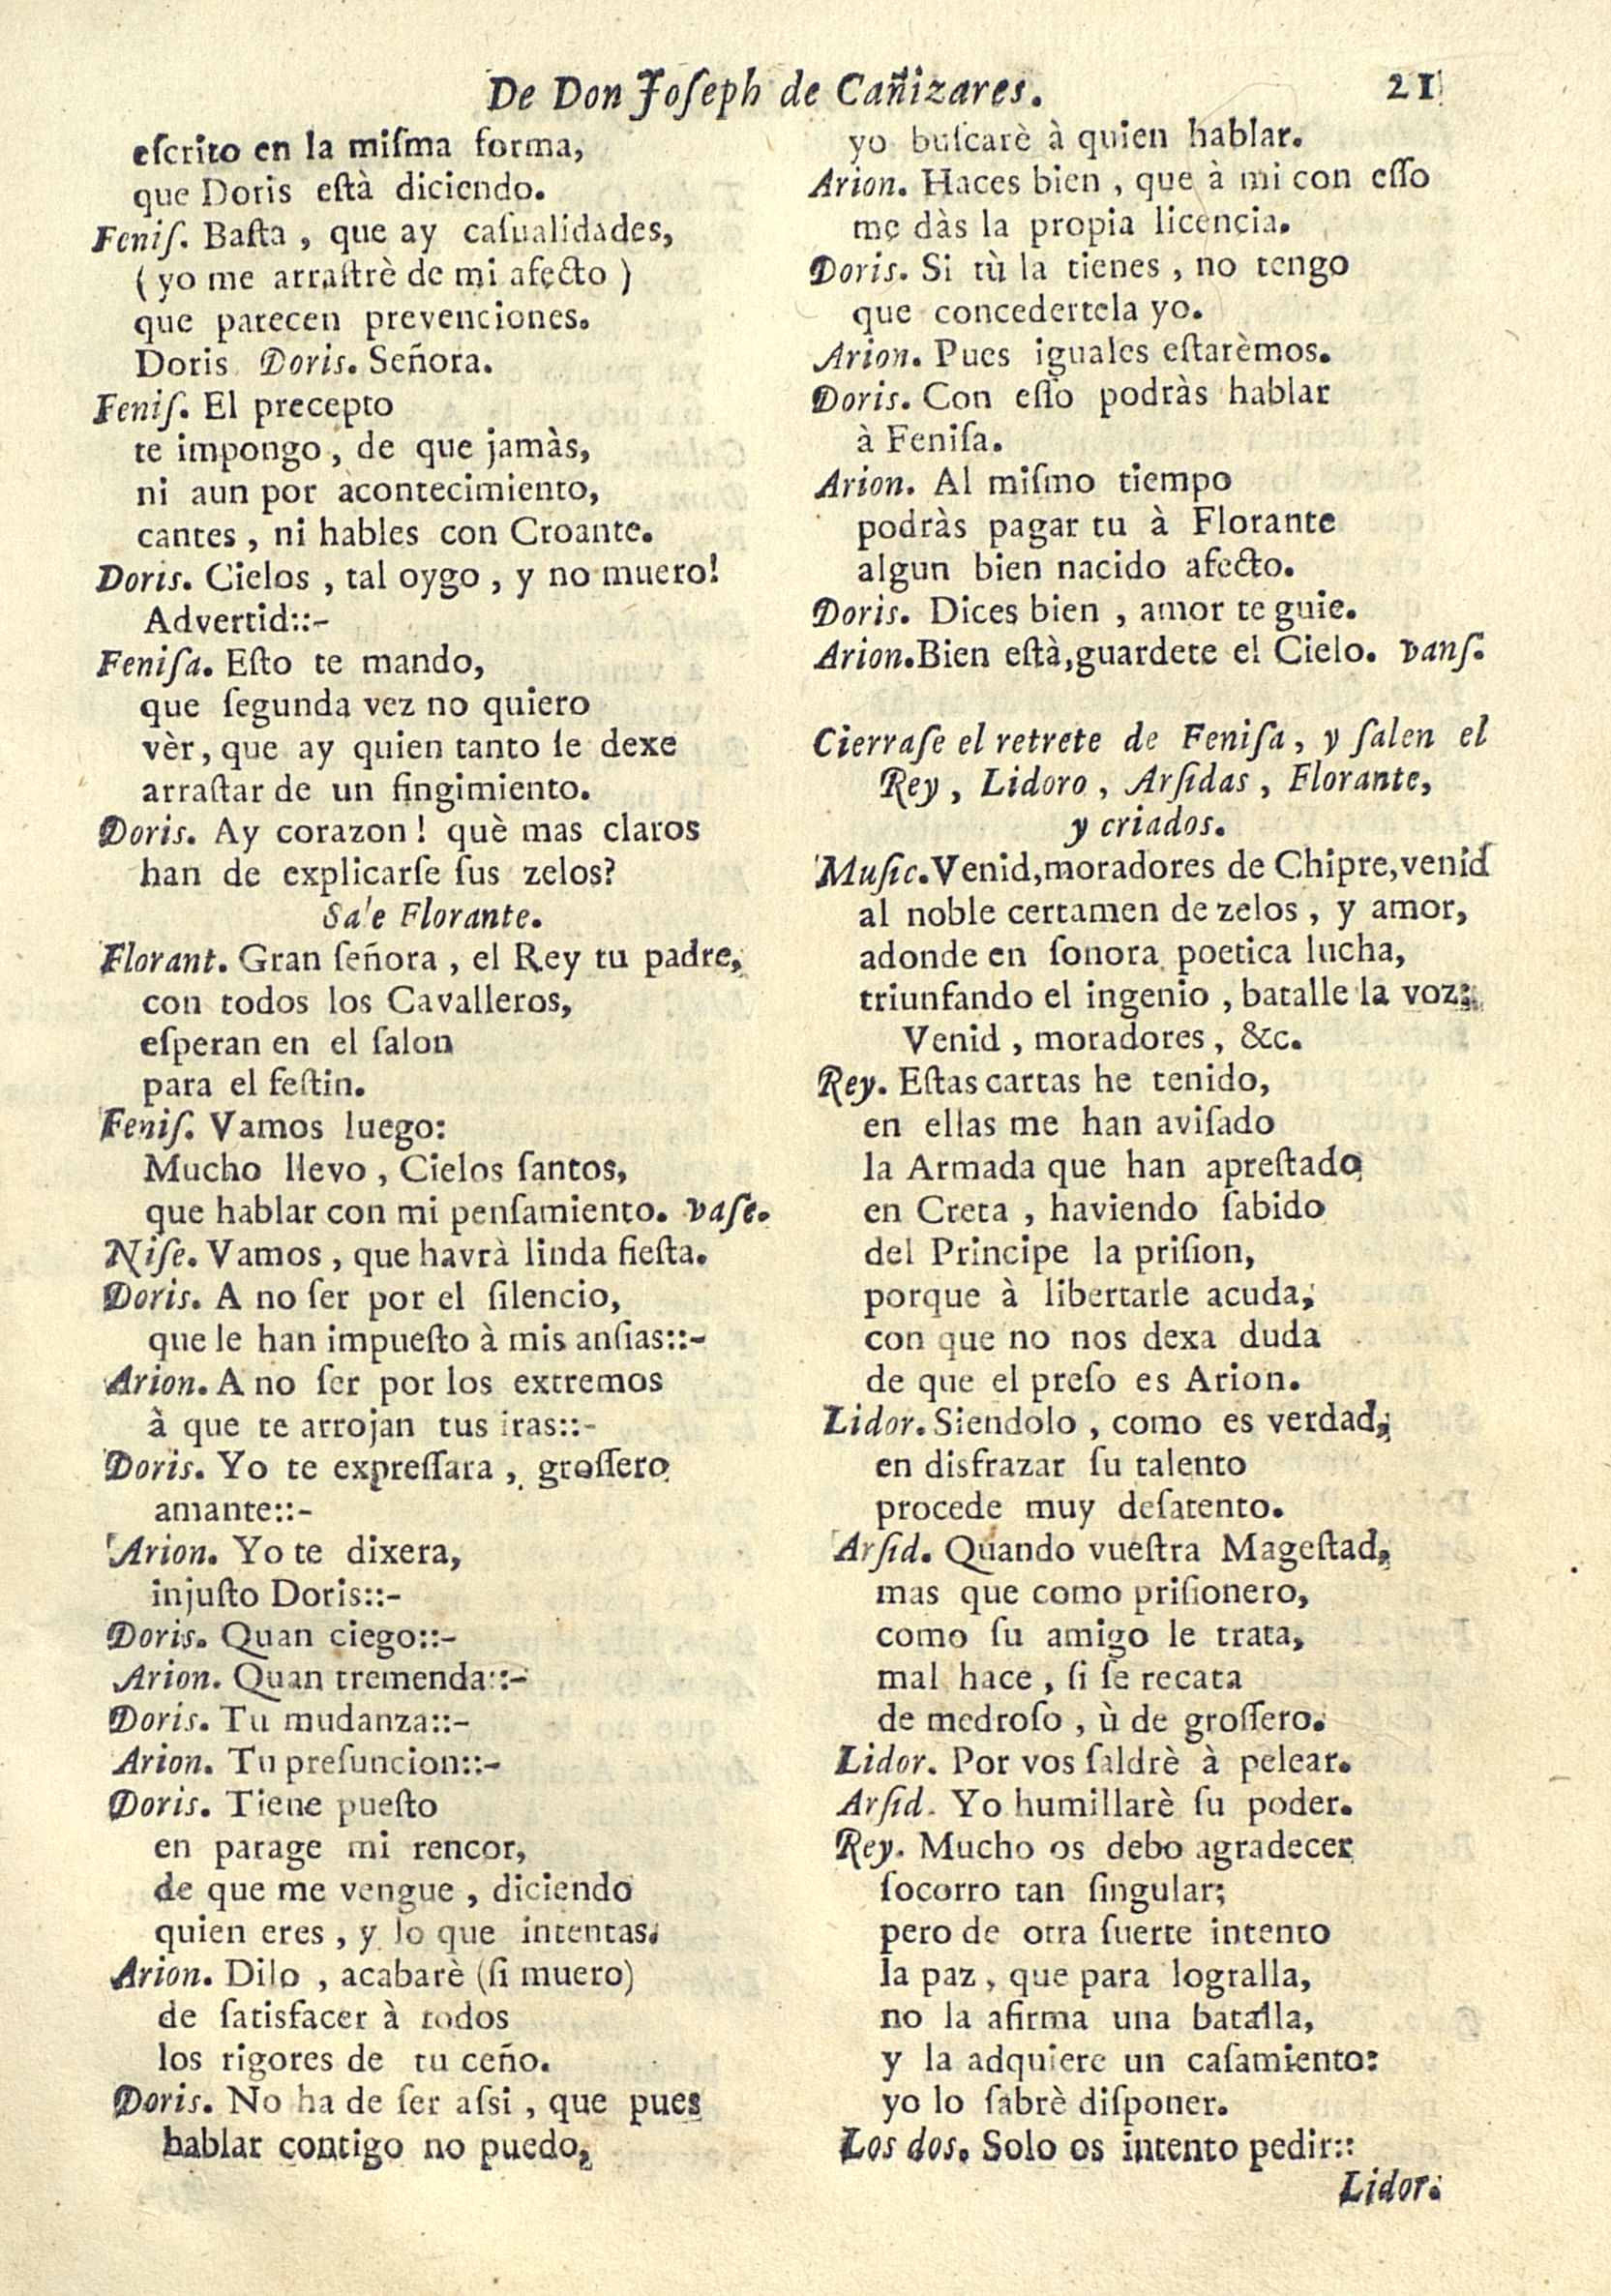 De Don Joſeph de Cañizares.
21
eſcrito en la miſma forma,
que Doris eſtà diciendo.
Feniſ. Baſta , que ay caſualidades,
( yo me arraſtrè de mi afecto )
que parecen prevenciones.
Doris Doris. Señora.
Feniſ. El precepto
te impongo , de que jamàs,
ni aun por acontecimiento,
cantes , ni hables con Croante.
Doris. Cielos , tal oygo , y no muero!
Advertid::-
Feniſa. Eſto te mando,
que ſegunda vez no quiero
vèr, que ay quien tanto ſe dexe
arraſtar de un fingimiento.
Doris. Ay corazon! què mas claros
han de explicarſe ſus zelos?
Sale Florante.
Florant. Gran ſeñora , el Rey tu padre,
con todos los Cavalleros,
eſperan en el ſalon
para el feſtin.
Feniſ. Vamos luego:
Mucho llevo , Cielos ſantos,
que hablar con mi penſamiento. vaſe.
Niſe. Vamos , que havrà linda fieſta.
Doris. A no ſer por el ſilencio,
que le han impueſto à mis anſias::-
Arion. A no ſer por los extremos
à que te arrojan tus iras::-
Doris. Yo te expreſſara , groſſero
amante::-
Arion. Yo te dixera,
injuſto Doris::-
Doris. Quan ciego::-
Arion. Quan tremenda::-
Doris. Tu mudanza::-
Arion. Tu preſuncion::-
Doris. Tiene pueſto
en parage mi rencor,
de que me vengue , diciendo
quien eres , y lo que intentas.
Arion. Dilo , acabarè (ſi muero)
de ſatisfacer à todos
los rigores de tu ceño.
Doris. No ha de ſer aſsi , que pues
hablar contigo no puedo,
yo buſcarè à quien hablar.
Arion. Haces bien , que à mi con eſſo
me dàs la propia licencia.
Doris. Si tù la tienes , no tengo
que concedertela yo.
Arion. Pues iguales eſtarèmos.
Doris. Con eſſo podràs hablar
à Feniſa.
Arion. Al miſmo tiempo
podràs pagar tu à Florante
algun bien nacido afecto.
Doris. Dices bien , amor te guie.
Arion. Bien eſtà, guardete el Cielo. vanſ.
Cierraſe el retrete de Feniſa, y ſalen el
Rey , Lidoro , Arſidas , Florante,
y criados.
Muſic. Venid, moradores de Chipre, venid
al noble certamen de zelos , y amor,
adonde en ſonora poetica lucha,
triunfando el ingenio , batalle la voz:
Venid , moradores, &c.
Rey. Eſtas cartas he tenido,
en ellas me han aviſado
la Armada que han apreſtado
en Creta , haviendo ſabido
del Principe la priſion,
porque à libertarle acuda,
con que no nos dexa duda
de que el preſo es Arion.
Lidor. Siendolo , como es verdad,
en disfrazar ſu talento
procede muy deſatento.
Arſid. Quando vueſtra Mageſtad,
mas que como priſionero,
como ſu amigo le trata,
mal hace , ſi ſe recata
de medroſo , ù de groſſero.
Lidor. Por vos ſaldrè à pelear.
Arſid. Yo humillarè ſu poder.
Rey. Mucho os debo agradecer
ſocorro tan ſingular;
pero de otra ſuerte intento
la paz , que para logralla,
no la afirma una batalla,
y la adquiere un caſamiento:
yo lo ſabrè diſponer.
Los dos. Solo os intento pedir::
Lidor.